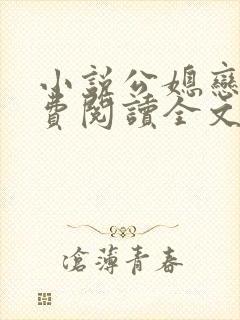 小說公媳戀
費閱讀全文
滄薄青春